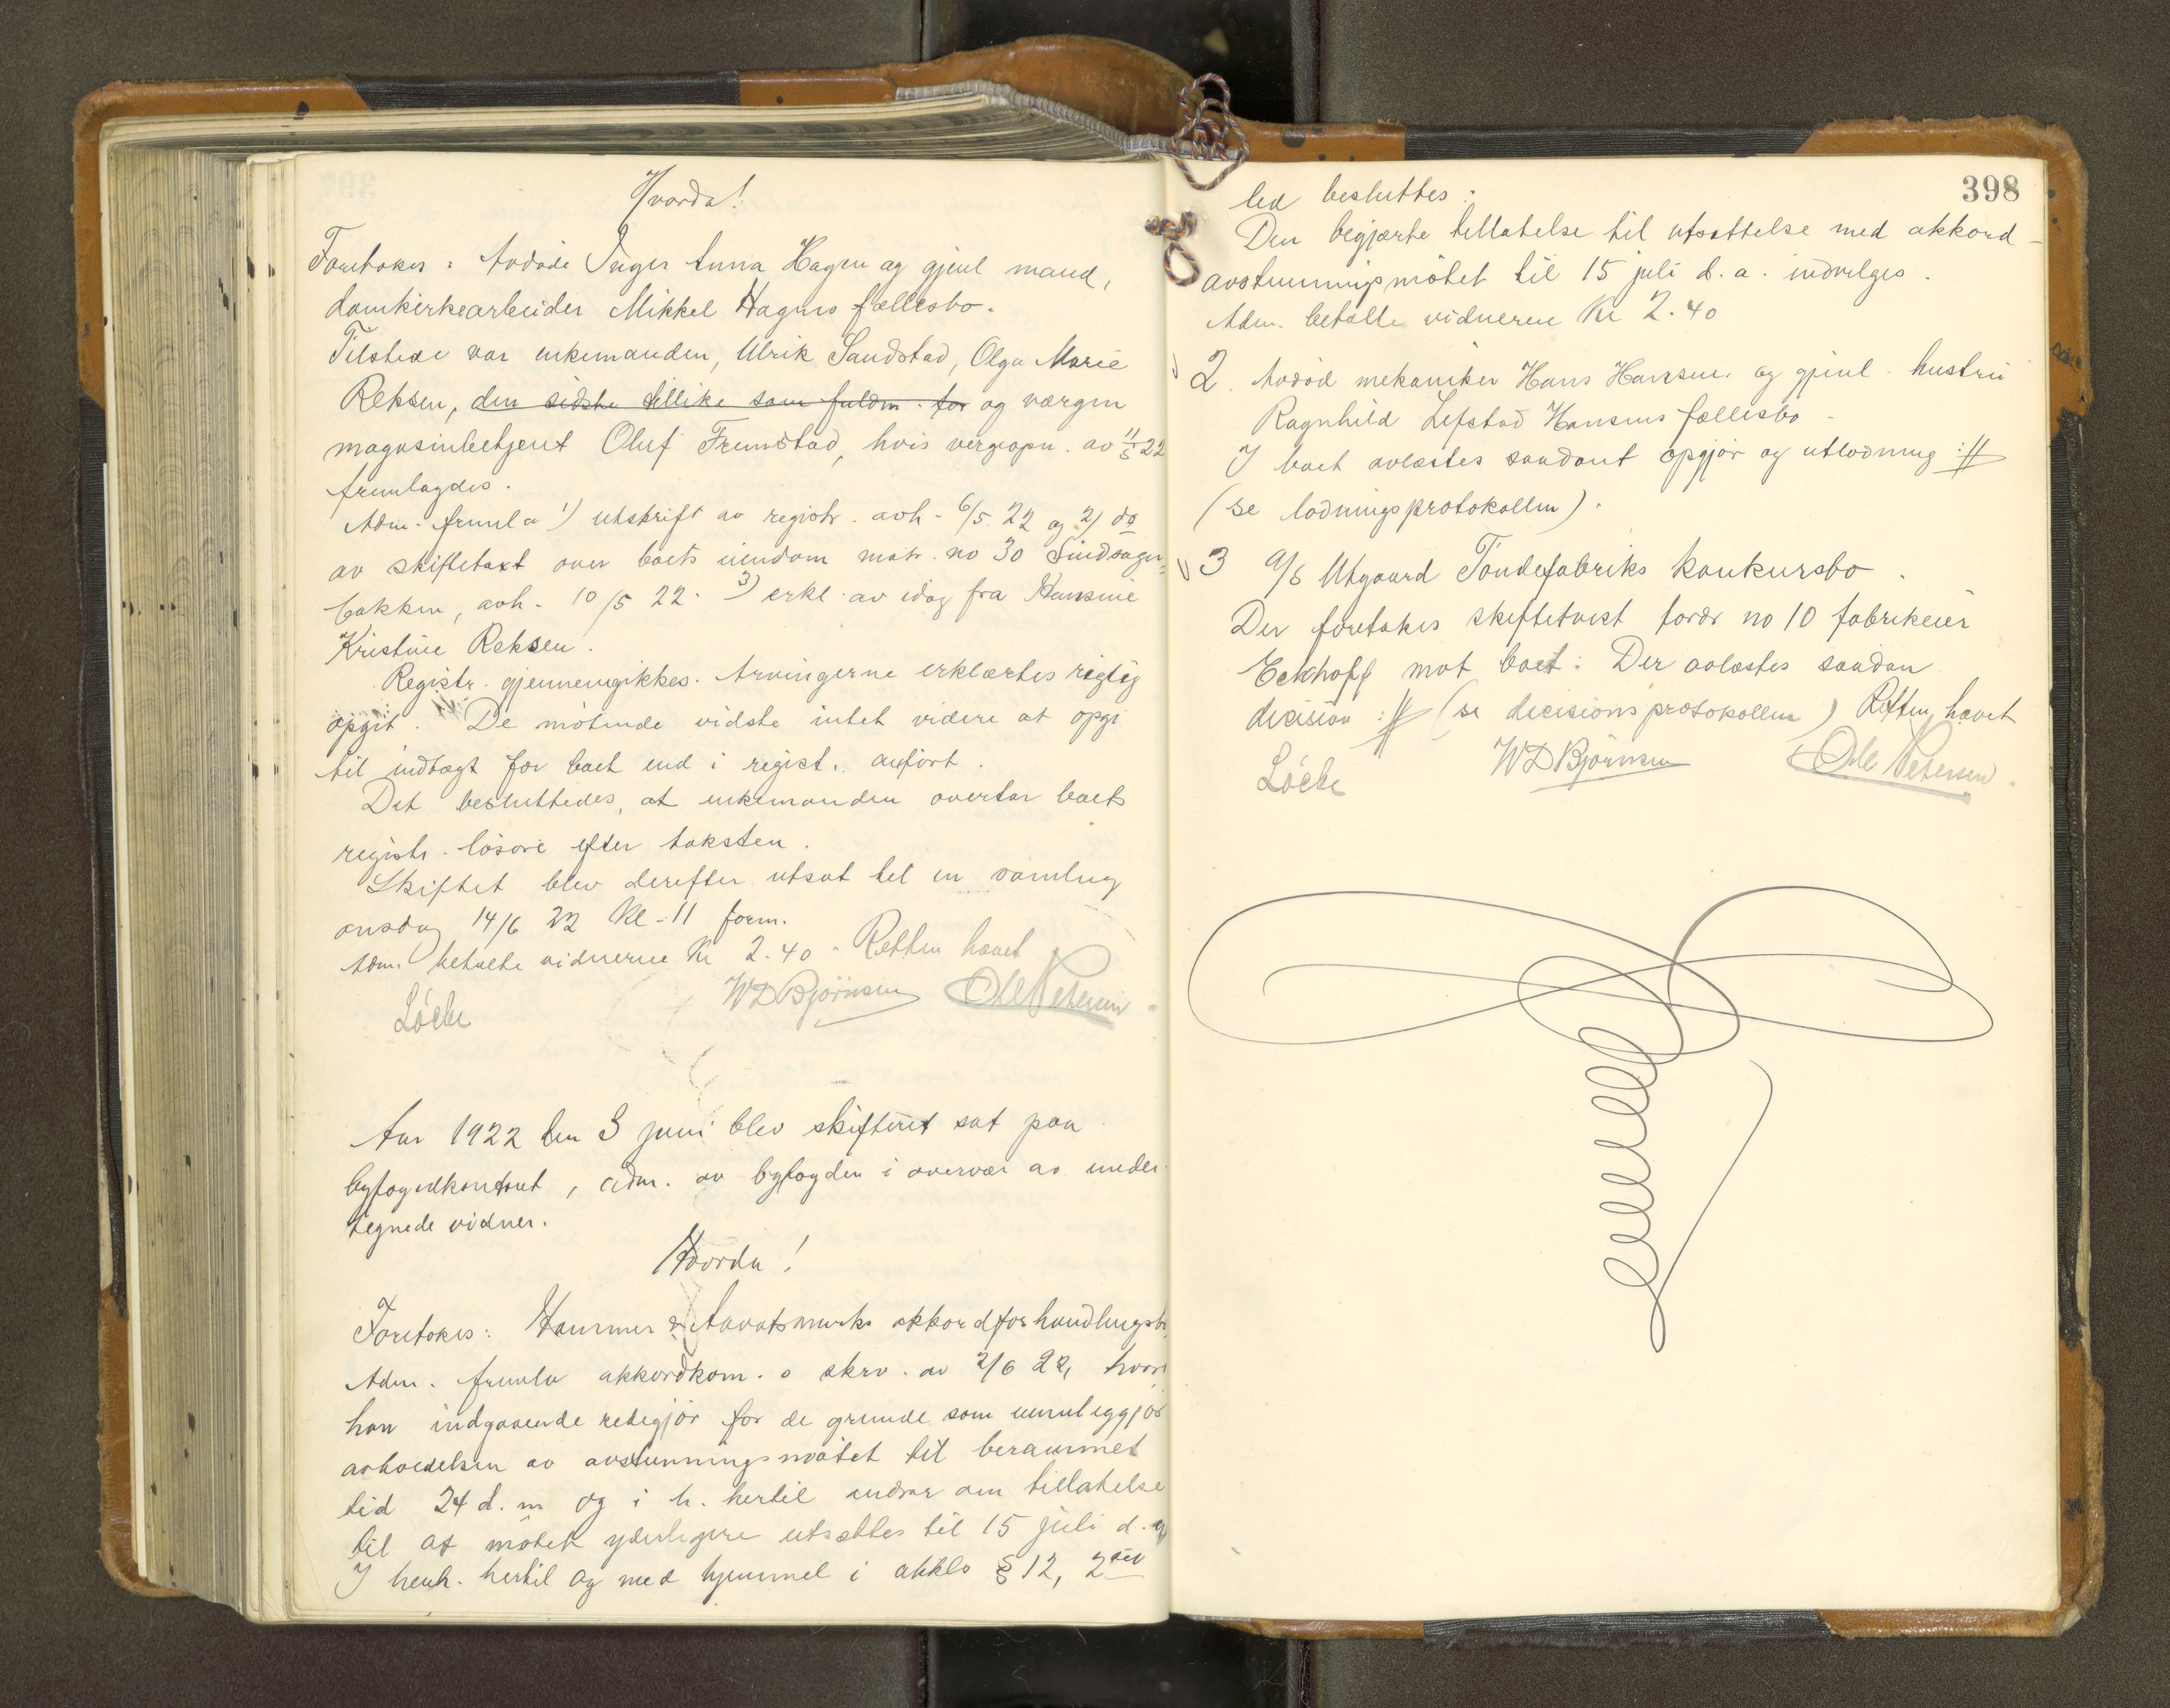 Hvorda!
Foretokes: Avdøde Inger Anna Hagen og gjenl. mand,
domkirkearbeider Mikkel Hagens fællesbo.
Tilstede var enkemanden, Ulrik Sandstad, Olga Marie
Reksen, den sidste tillike som fuldm. for og værgen
magasinbetjent Oluf Fremstad, hvis vergeopn. av 11/5 22
fremlagdes.
Adm. freml a 1) utskrift av registr. avh. 6/5 22 og 2) do
av skiftetaxt over boets eiendom matr. no 30
bakken, avh. 10/5 22. 3) erkl. av idag fra Hansine
Kristine Reksen.
Registr. gjennemgikkes. Arvingerne erklærtes rigtig
opgit. De møtende vidste intet videre at opgi
til indtægt for boet end i registr. anført.
Det besluttedes, at enkemanden overtar boets
registr. løsøre efter taksten.
Skiftet blev derefter utsat til en samling
onsdag 14/6 22 kl. 11 form.
Adm. betalte vidnerne Kr 2.40. Retten hævet
WD Bjørnsen Ole Petersen
Aar 1922 den 3 juni blev skifteret sat paa
byfogedkontoret, adm. av byfogden i overvær av under-
tegnede vidner.
Hvorda!
Foretokes: Hammer & akkordforhandlingsbo
Adm. fremla akkordkom.s skrv. av 2/6 22, hvori
han indgaaende redegjør for de grunde som umuliggjør
avholdelsen av avstemningsmøtet til berammet
tid 24 d. m og i h. hertil andrar om tillatelse
til at møtet yderligere utsættes til 15 juli d. a
I henh. hertil og med hjemmel i akklo § 12, 2det
led besluttes:
398
Den begjærte tillatelse til utsættelse med akkord-
avstemningsmøtet til 15 juli d. a. indvilges.
Adm. betalte vidnerne Kr 2.40
2. Avdød mekaniker Hans Hansen og gjenl. hustru
Ragnhild Lefstad Hansens fællesbo
I boet avlæstes saadant opgjør og utlodning ://
(se lodningsprotokollen).
3 A/S Utgaard Tøndefabriks konkursbo.
Der foretokes skiftetvist fordr no 10 fabrikeier
Eckhoff mot boet: Der avlæstes saadan
decision :// (se decisionsprotokollen) Retten hævet
WD Bjørnsen Ole Petersen